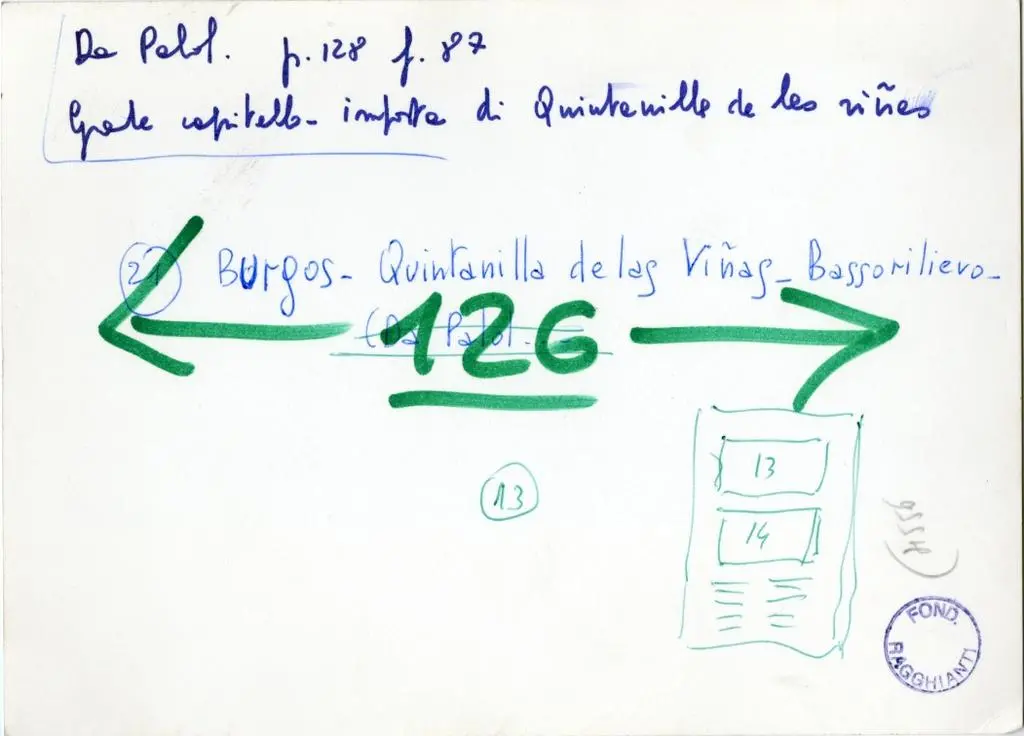 Da Palol. p. 128 f. 87
Grande capitello - imposta di Quintanilla de las viñas
21 Burgos - Quintanilla de las Viñas - Bassorilievo -
(Da Palol.
126
13
13
14
FOND. RAGGHIANTI